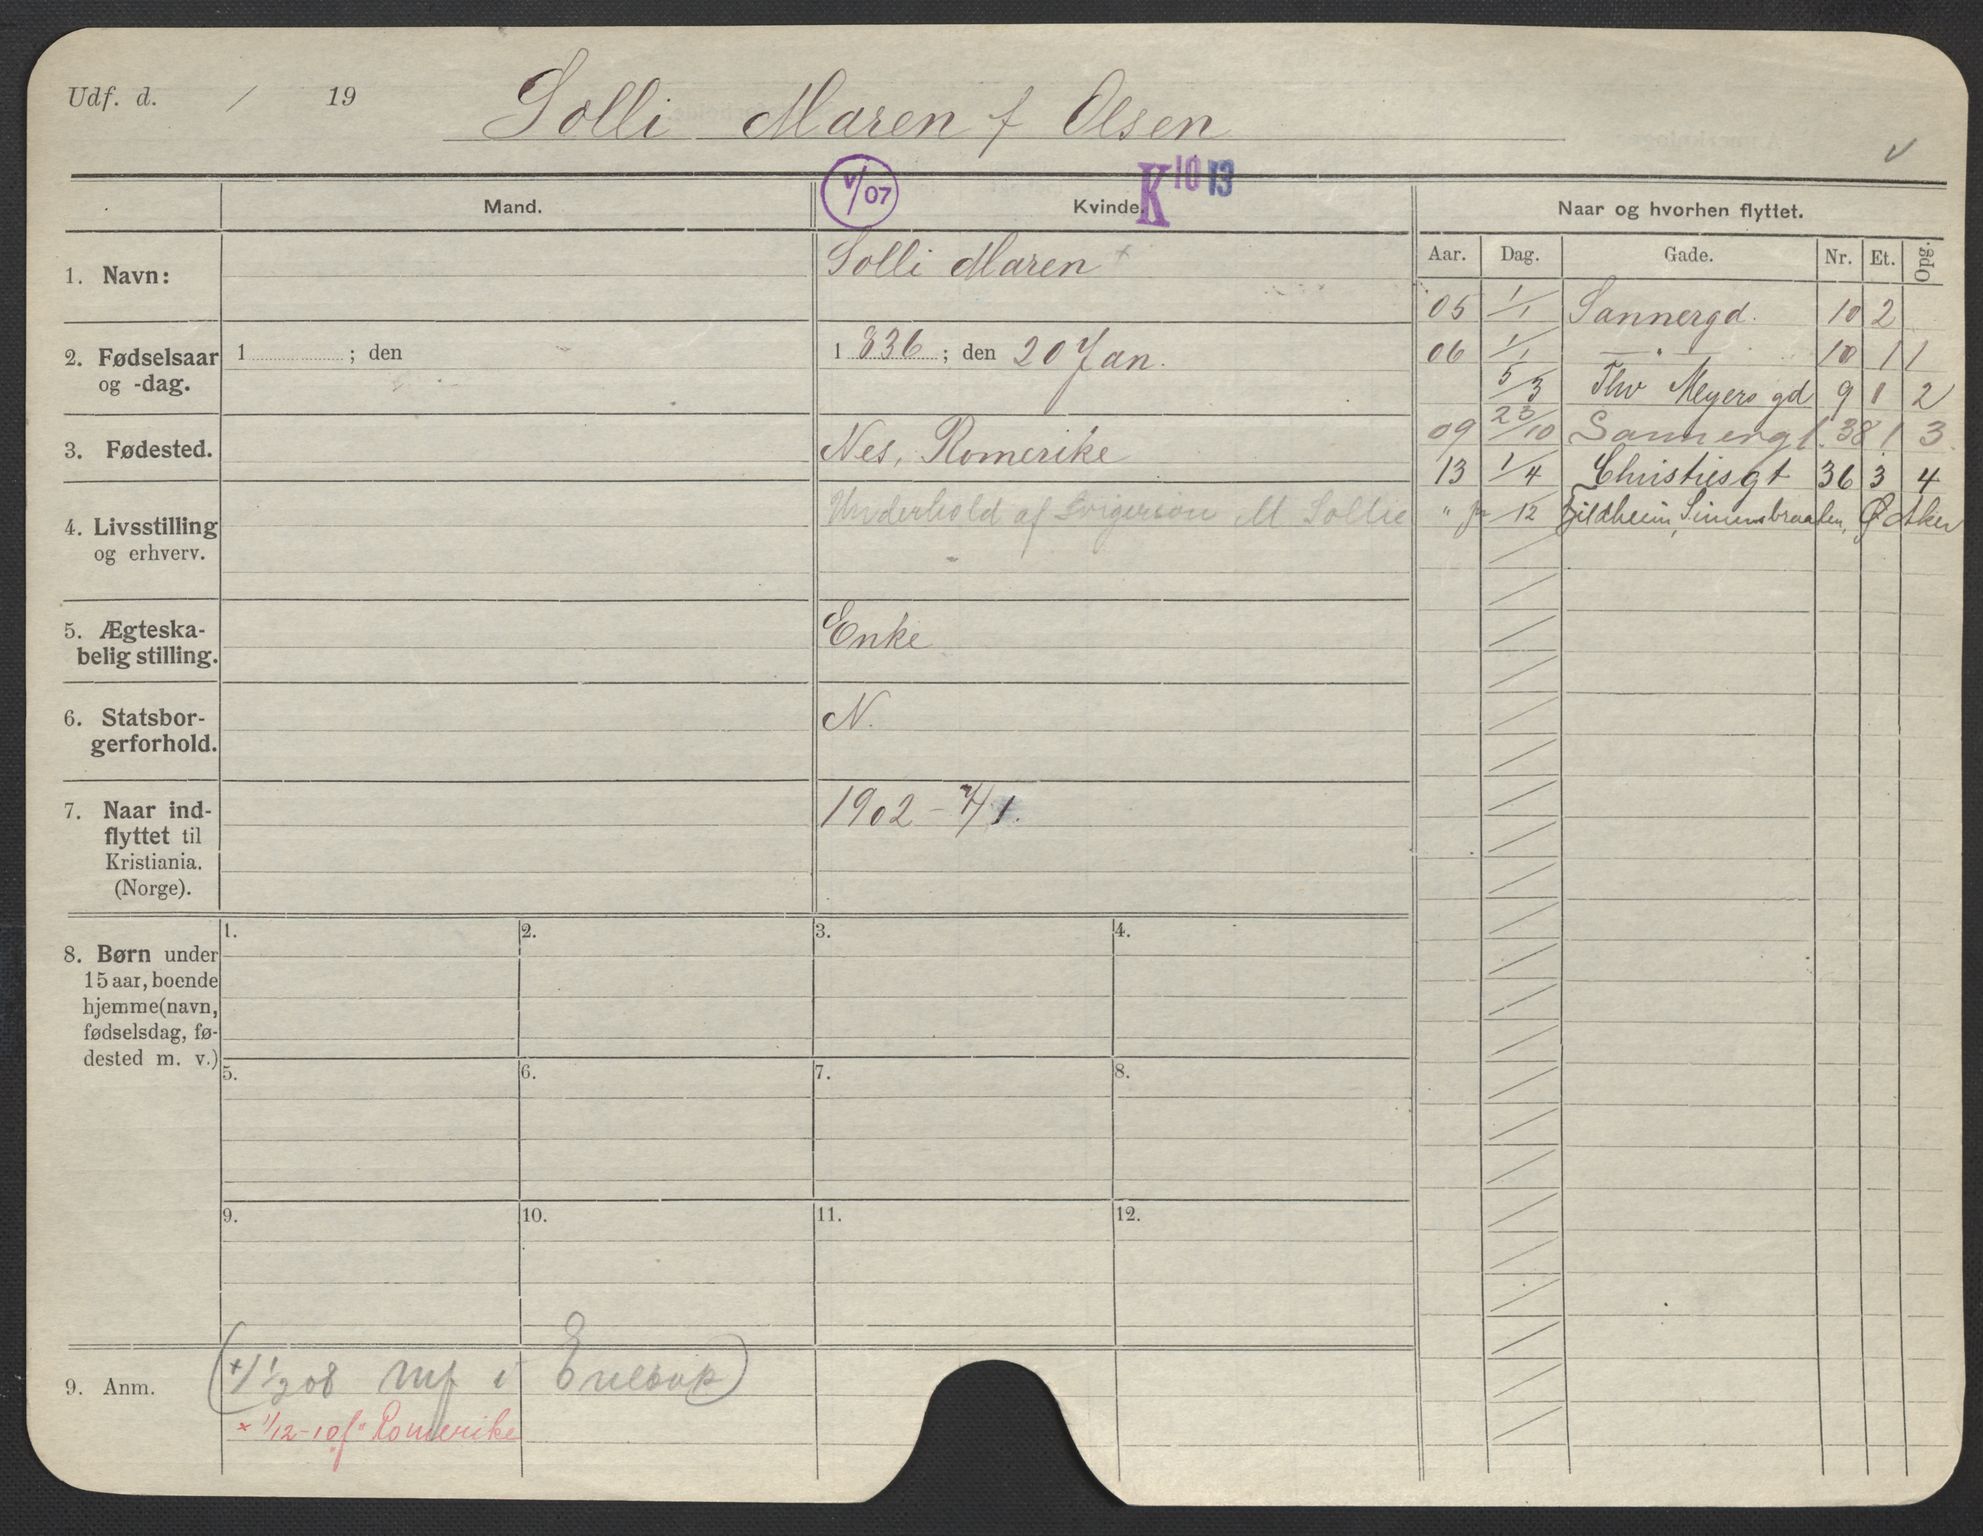 Udf. d. / 19
Solli Maren f Olsen
v
Mand.
v/07
Kvinde.
K 10 13
Naar og hvorhen flyttet.
Aar. Dag. Gade. Nr. Et. Opg.
1. Navn:
Solli Maren +
05 1/1 Sannergd. 10 2
06 1/1 — " — 10 1 1
5/3 Thv Meyers gd 9 1 2
09 23/10 Sannergt. 38 1 3
13 1/4 Christiesgt 36 3 4
" 12 Simensbraaten, Ø Aker
2. Fødselsaar
og -dag.
1 ; den
1 836 ; den 20 Jan.
3. Fødested.
Nes, Romerike
4. Livsstilling
og erhverv.
Underhold af Svigersøn M Sollie
5. Ægteska-
belig stilling.
Enke
6. Statsbor-
gerforhold.
N.
7. Naar ind-
flyttet til
Kristiania.
(Norge).
1902 -
8. Børn under
15 aar, boende
hjemme (navn,
fødselsdag, fø-
dested m. v.)
1. 2. 3. 4.
5. 6. 7. 8.
9. 10. 11. 12.
9. Anm.
08 i
× 1/12-10 f" Romerike